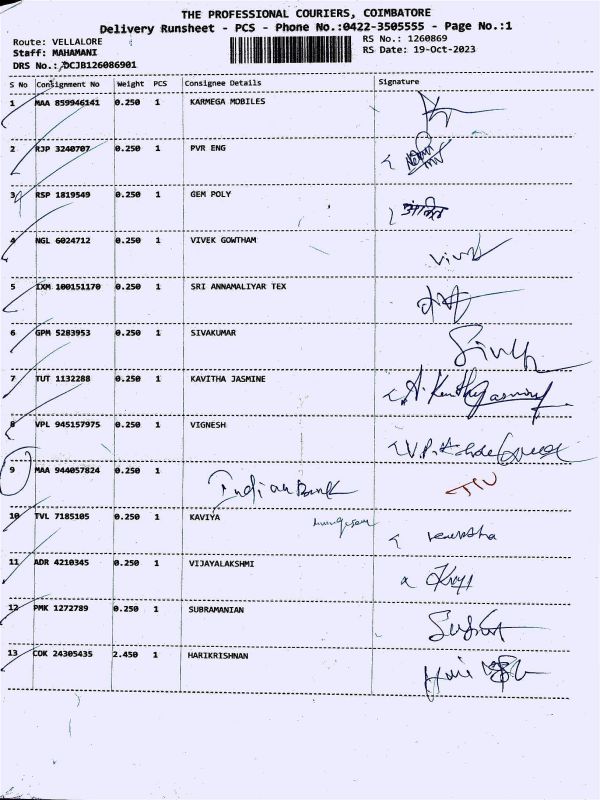 THE PROFESSIONAL COURIERS, COIMBATORE
Delivery Runsheet - PCS - Phone No.:0422-3505555 - Page No.:1
Route: VELLALORE RS No.: 1260869
Staff: MAHAMANI RS Date: 19-Oct-2023
DRS No.: DCJB126086901
S No Consignment No Weight PCS Consignee Details Signature
1 MAA 859946141 0.250 1 KARMEGA MOBILES
2 RJP 3240707 0.250 1 PVR ENG
3 RSP 1819549 0.250 1 GEM POLY
4 NGL 6024712 0.250 1 VIVEK GOWTHAM
5 IXM 100151170 0.250 1 SRI ANNAMALIYAR TEX
6 GPM 5283953 0.250 1 SIVAKUMAR
7 TUT 1132288 0.250 1 KAVITHA JASMINE
8 VPL 945157975 0.250 1 VIGNESH
9 MAA 944057824 0.250 1 Indian Bank
10 TVL 7185105 0.250 1 KAVIYA
11 ADR 4210345 0.250 1 VIJAYALAKSHMI
12 PMK 1272789 0.250 1 SUBRAMANIAN
13 COK 24305435 2.450 1 HARIKRISHNAN